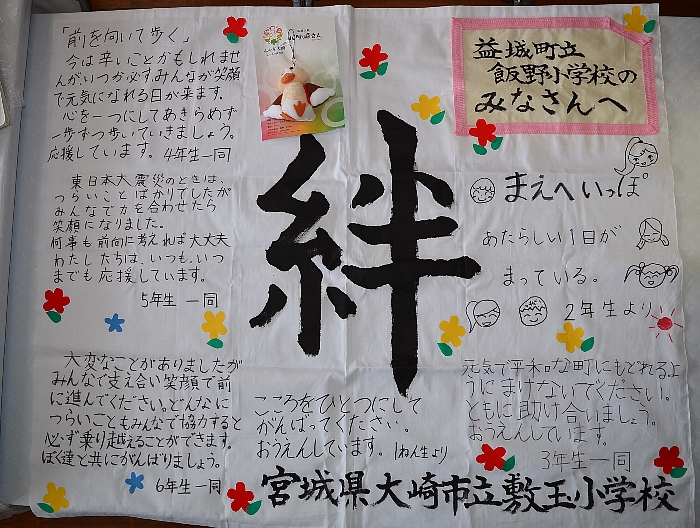 「前を向いて歩く」
今は辛いことかもしれませ
んがいつか必ずみんなが笑顔
で元気になれる日が来ます。
心を一つにしてあきらめず
一歩ずつ歩いていきましょう。
応援しています。4年生一同
東日本大震災のときは、
つらいことばかりでしたが
みんなで力を合わせたら
笑顔になりました。
何事も前向に考えれば大丈夫
わたしたちは、いつも、いつ
までも応援しています。
5年生 一同
大変なことがありましたが
みんなで支え合い笑顔で前
に進んでください。どんなに
つらいこともみんなで協力すると
必ず乗り越えることができます。
ぼく達と共にがんばりましょう。
6年生一同
絆
益城町立
飯野小学校の
みなさんへ
まえへいっぽ
あたらしい1日が
まっている。
2年生より
こころをひとつにして
がんばってください。
おうえんしています。1ねん生より
元気で平和な町にもどれるよ
うにまけないでください。
ともに助け合いましょう。
おうえんしています。
3年生一同
宮城県大崎市立敷玉小学校